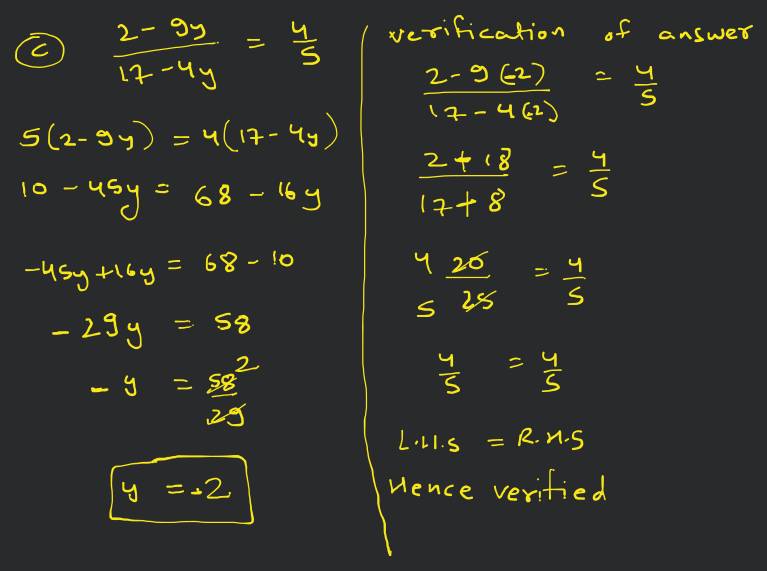 c  (2 - 9y)/(17 - 4y) = 4/5
5(2-9y) = 4(17-4y)
10 - 45y = 68 - 16y
-45y+16y = 68-10
- 29y = 58
- y = 58/29 2
y = -2
verification of answer
(2-9(-2))/(17-4(-2)) = 4/5
(2+18)/(17+8) = 4/5
4 20/25 5 = 4/5
4/5 = 4/5
L.H.S = R.H.S
Hence verified